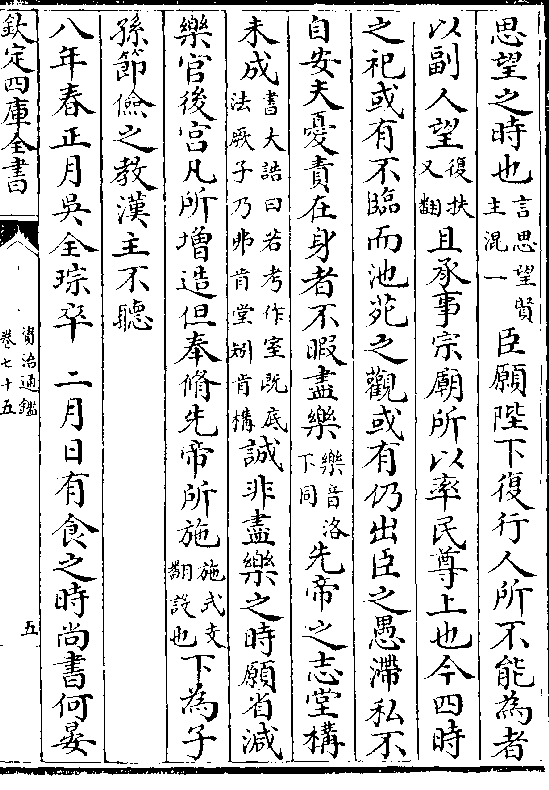 思望之時也言思望賢主混一臣願陛下復行人所不能為者
以副人望復扶又翻且承事宗廟所以率民尊上也今四時
之祀或有不臨而池苑之觀或有仍出臣之愚滯私不
自安夫憂責在身者不暇盡樂樂音洛下同先帝之志堂構
未成書大誥曰若考作室既底法厥子乃弗肯堂矧肯構誠非盡樂之時願省減
樂官後宮凡所增造但奉脩先帝所施施式支翻設也下為子
孫節儉之教漢主不聽
八年春正月吳全琮卒　二月日有食之時尚書何晏
欽定四庫全書
資治通鑑
卷七十五
五